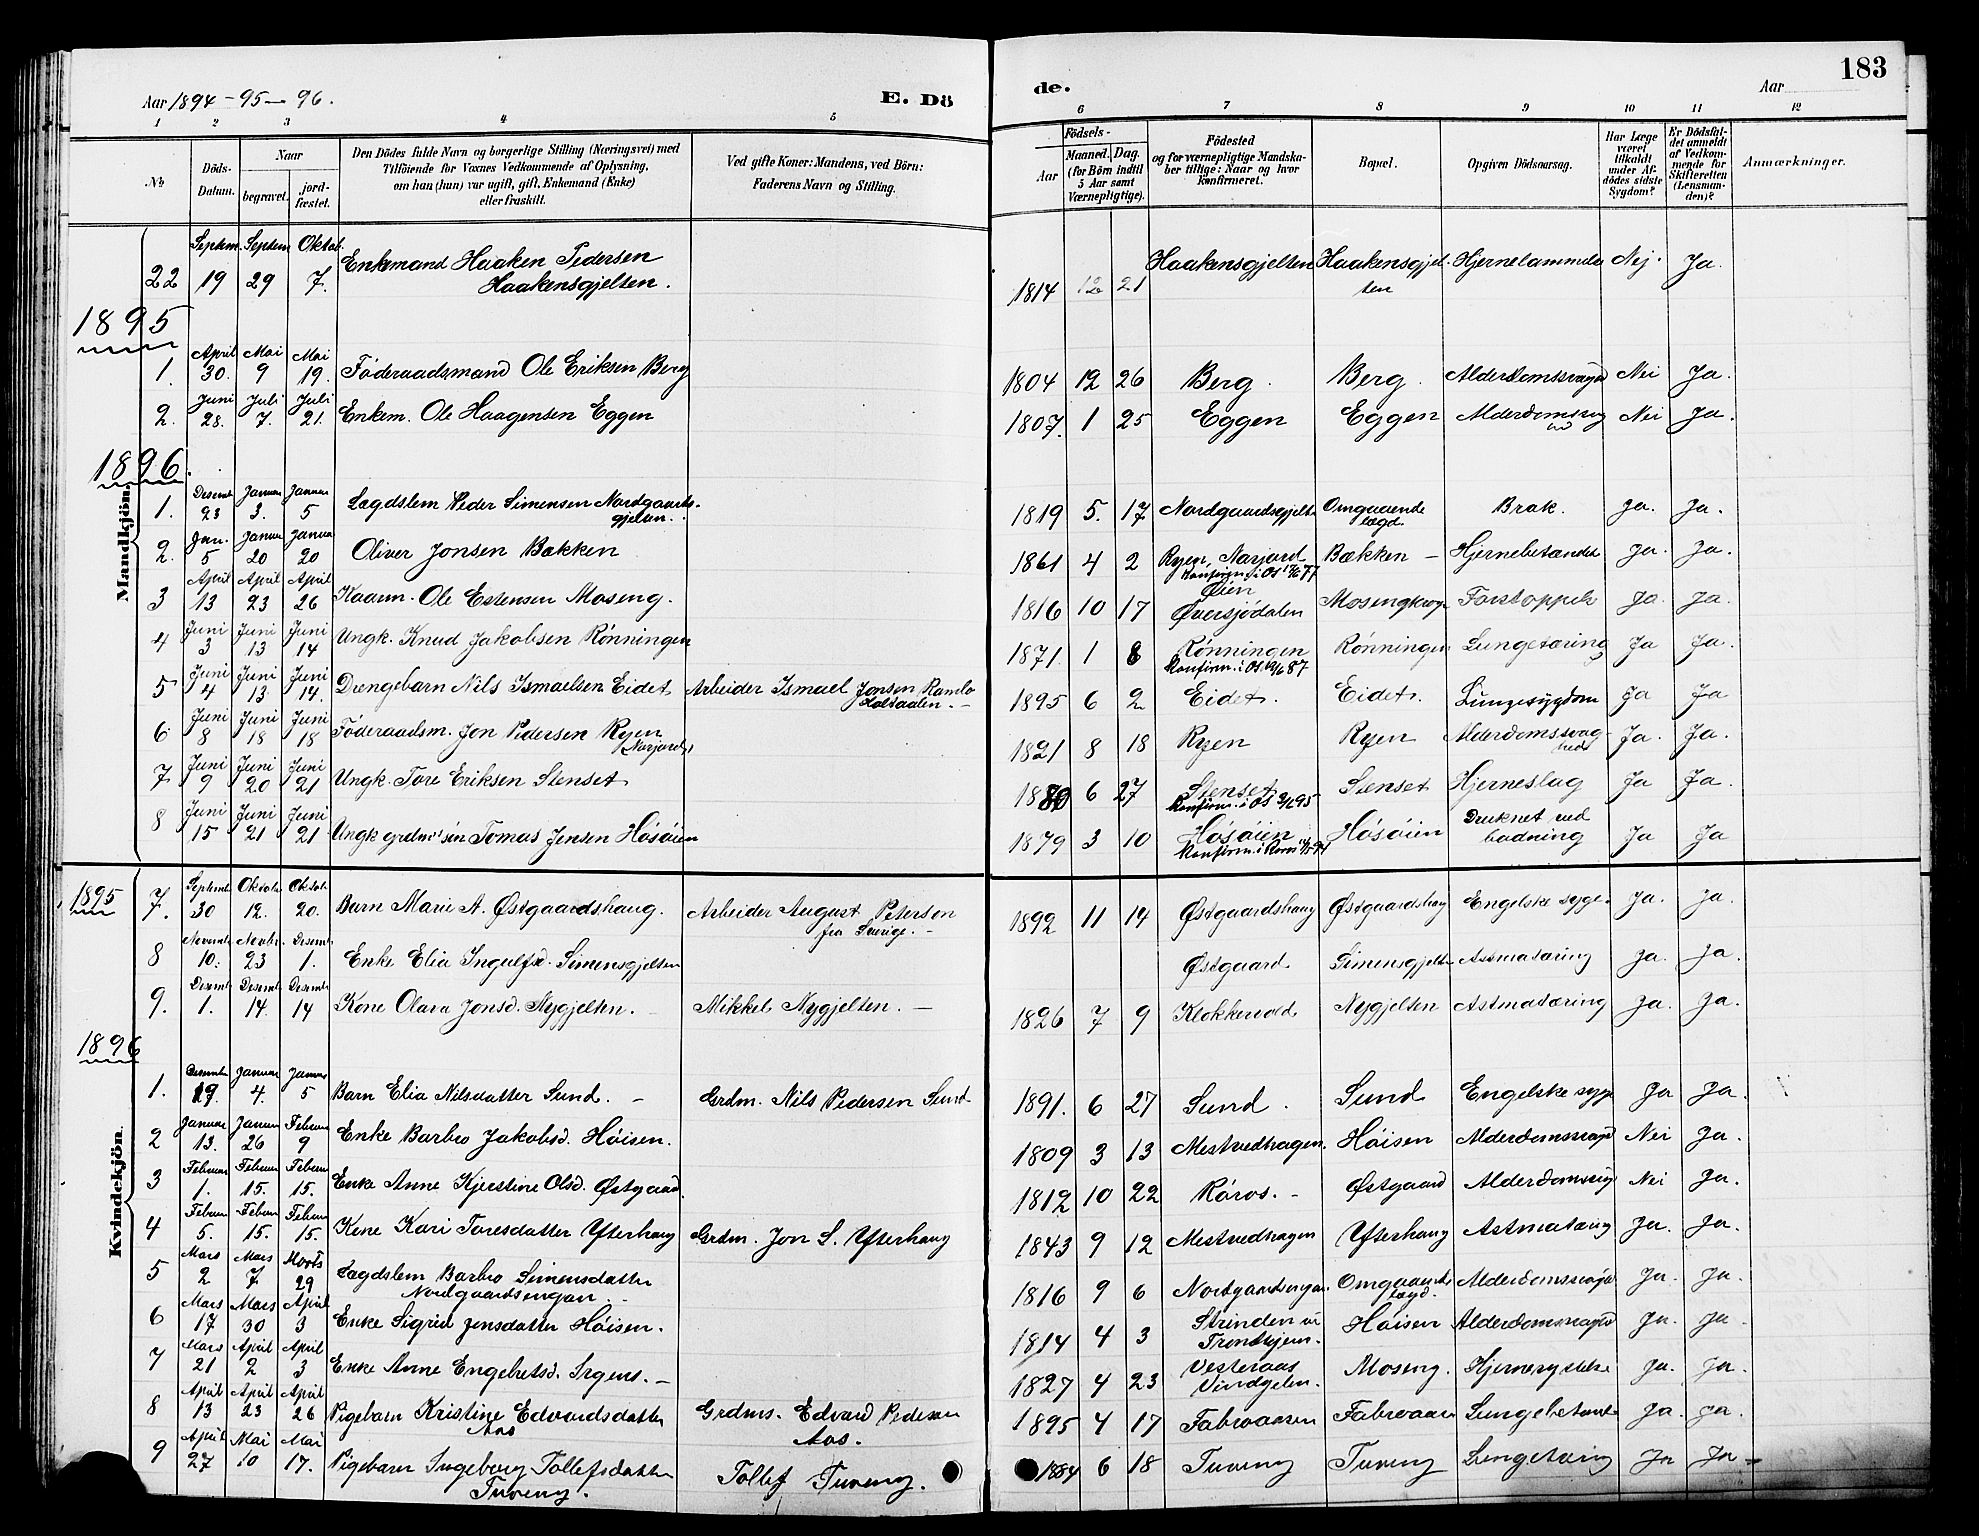 183
Aar 1894-95-96.
E. Dö
de.
Aar
1 2 3 4 5 6 7 8 9 10 11 12
No
Döds-Datum.
Naar
begravet.
jord-fæstet.
Den Dödes fulde Navn og borgerlige Stilling (Næringsvei) med
Tilföiende for Voxnes Vedkommende af Oplysning,
om han (hun) var ugift, gift, Enkemand (Enke)
eller fraskilt.
Ved gifte Koner: Mandens, ved Börn:
Faderens Navn og Stilling.
Födsels-
Aar
Maaned. Dag.
(for Börn indtil
5 Aar samt
Værnepligtige).
Födested
og for værnepligtige Mandska-
ber tillige: Naar og hvor
konfirmeret.
Bopæl.
Opgiven Dödsaarsag.
Har Læge
været
tilkaldt
under Af-
dödes sidste
Sygdom?
Er Dödsfal-
det anmeldt
af Vedkom-
mende for
Skifteretten
(Lensman-
den)?
Anmærkninger.
Mandkjön.
22 Septem. 19 Septem 29 Oktob. 7. Enkemand Haaken Pedersen Haakensgjelten. 1814 12 21 Haakensgjelten Haakensgjelten Hjernelammelse Nej. Ja.
1895
1. April 30. Mai 9 Mai 19. Föderaadsmand Ole Eriksen Berg 1804 12 26 Berg. Berg. Alderdomssvagd Nei Ja.
2. Juni 28. Juli 7. Juli 21. Enkem. Ole Haagensen Eggen 1807. 1 25 Eggen Eggen Nei Ja.
1896.
1. Desemb 23 Januar 3. Januar 5 Lægdslem Peder Simensen Nordgaards-gjelten. 1819 5. 17 Nordgaardsgjelt Omgaaende lægd. Brok. Ja. Ja.
2. Jan. 5 Januar 20 Januar 20 Oliver Jonsen Bækken 1861 4 2 Ryen, Narjord Konfirm. i Os 77 Bækken - Hjernebetændels Ja. Ja.
3 April 13 April 23 April 26 Kaarm. Ole Estensen Moseng. 1816 10 17 Öien Øversjödalen Forstoppels Ja. Ja.
4 Juni 3 Juni 13 Juni 14 Ungk. Knud Jakobsen Rönningen 1871. 1 8 Rönningen Konfirm. i Os 87 Rönningen Lungetæring Ja Ja.
5 Juni 4 Juni 13 Juni 14. Drengebarn Nils Ismaelsen Eidet Arbeider Ismael Jonsen Ramlo Holtaalen. - 1895 6 2 Eidet. Eidet. Lungesygdom Ja Ja
6 Juni 8 Juni 18 Juni 18 Föderaadsm. Jon Pedersen Ryen Narjord 1821 8 18 Ryen Ryen Alderdomssvag-hed Ja. Ja.
7 Juni 9 Juni 20 Juni 21 Ungk. Tore Eriksen Stenset 1880 6 27 Stenset Konfirm. i Os 95 Stenset Hjerneslag Ja Ja.
8 Juni 15 Juni 21 Juni 21 Ungk grdms sön Tomas Jensen Hösöien 1879 3 10 Hösöien Konfirm. i Röros 94 Hösöien Druknet ved badning Ja Ja
Kvindekjön.
1895
7. Septemb 30 Oktob. 12. Oktob. 20. Barn Marie A. Østgaardshaug. Arbeider August Peterson fra Sverige. - 1892 11 14 Østgaardshaug Østgaardshaug Engelske syge. Ja. Ja.
8 Novemb 10. Novbr. 23 Desemb 1. Enke Elia Ingulfsd. Simensgjelten Østgaard Simensgjelten Astmatæring Ja. Ja.
9. Desemb 1. Desemb 14. Desemb 14 Kone Olava Jonsd. Nygjelten. Mikkel Nygjelten. - 1826 7 9 Klokkervold Nygjelten Astmatæring Ja. Ja.
1896
1. Desemb 19. Januar 4. Januar 5 Barn Elia Nilsdatter Sund. - Grdm. Nils Pedersen Sund 1891. 6 27 Sund. Sund Engelske syge Ja Ja.
2 Januar 13. Januar 26 Februar 9 Enke Barbro Jakobsd. Höisen. 1809 3 13 Mestvedhagen. Höisen Alderdomssvagd Nei Ja.
3 Februar 1. Februar 15. Februar 15. Enke Anne Kjerstine Olsd. Østgaard. 1812 10 22 Röros. - Østgaard Nei Ja.
4 Februar 5. Februar 15. Februar 15. Kone Kari Toresdatter Ytterhaug Grdm. Jon S. Ytterhaug 1843 9 12 Mestvedhagen Ytterhaug Astmatæring Ja. Ja.
5 Mars 2 Mars 7. Marts 29 Lægdslem Barbro Simensdatter Nordgaardsengan. - 1816 9 6 Nordgaardsengan Omgaaende lægd. Alderdomssvagd Ja. Ja.
6 Mars 17 Mars 30 April 3 Enke Sigrid Jensdatter Höisen. 1814 4 3 Strinden v. Trondhjem. Höisen Alderdomssvagd Ja. Ja.
7 Mars 21 April 2 April 3 Enke Anne Engebretsd. Irgens. - 1827 4 23 Vesteraas Vindgelen. Moseng. Hjernerystelse Ja. Ja.
8 April 13 April 23 April 26 Pigebarn Kristine Edvardsdatter Aas Grdms. Edvard Pedersen Aas. 1895 4 17 Ja. Ja.
9 April 27 Mai 10 Mai 17. Pigebarn Ingeborg Tollefsdatter Tuveng. Tollef Tuveng. 1884 6 18 Tuveng Tuveng Lungetæring Ja Ja